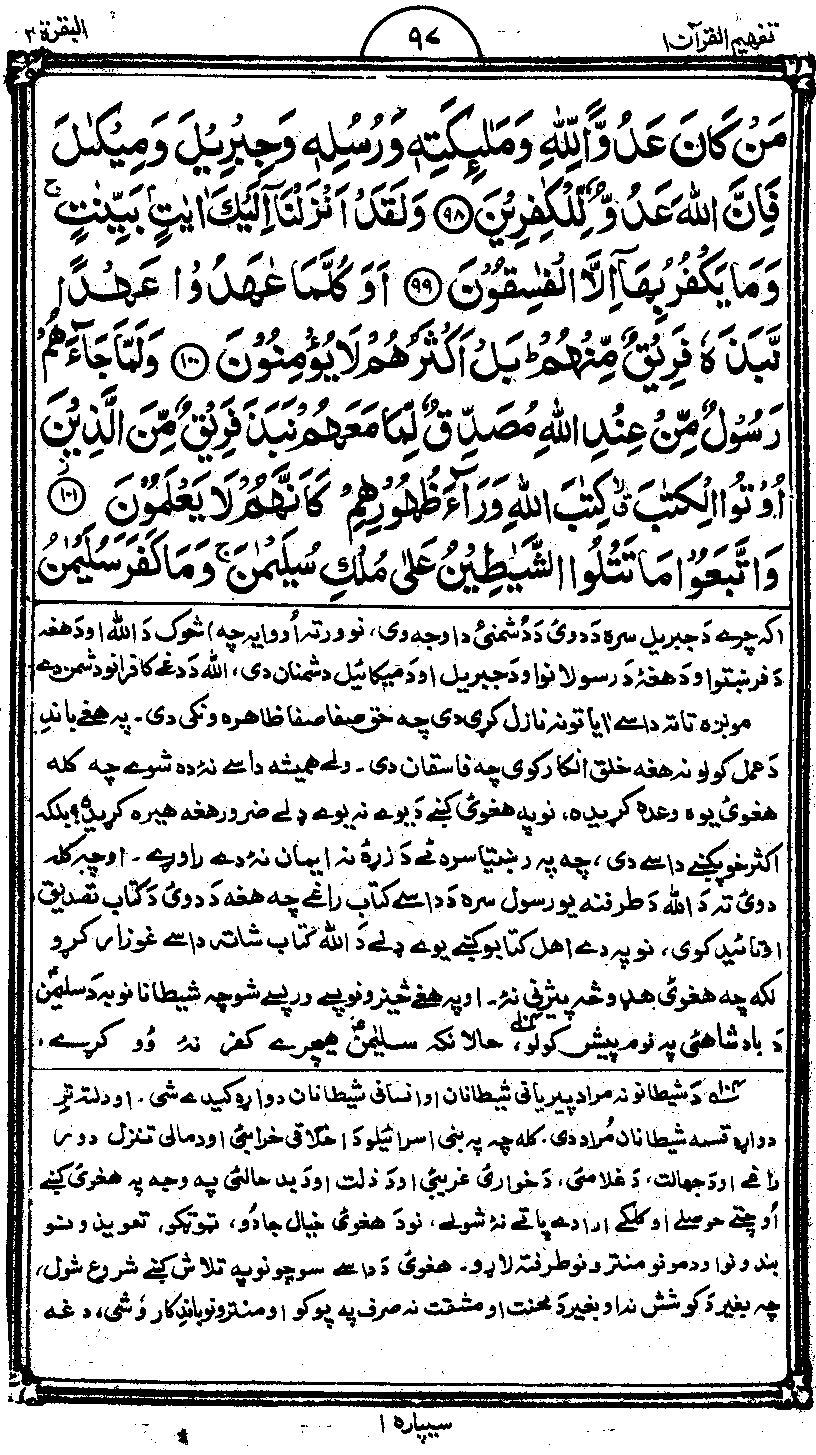 تفهیم القرآن ۱
۹۷
البقرة ۲
مَنْ كَانَ عَدُوًّا لِّلّٰهِ وَمَلٰٓئِكَتِهٖ وَرُسُلِهٖ وَجِبْرِيْلَ وَمِيْكٰىلَ
فَاِنَّ اللّٰهَ عَدُوٌّ لِّلْكٰفِرِيْنَ ﴿۹۸﴾ وَلَقَدْ اَنْزَلْنَآ اِلَيْكَ اٰيٰتٍۭ بَيِّنٰتٍ ۚ
وَمَا يَكْفُرُ بِهَآ اِلَّا الْفٰسِقُوْنَ ﴿۹۹﴾ اَوَكُلَّمَا عٰهَدُوْا عَهْدًا
نَّبَذَهٗ فَرِيْقٌ مِّنْهُمْ ؕ بَلْ اَكْثَرُهُمْ لَا يُؤْمِنُوْنَ ﴿۱۰۰﴾ وَلَمَّا جَآءَهُمْ
رَسُوْلٌ مِّنْ عِنْدِ اللّٰهِ مُصَدِّقٌ لِّمَا مَعَهُمْ نَبَذَ فَرِيْقٌ مِّنَ الَّذِيْنَ
اُوْتُوا الْكِتٰبَ ۙ كِتٰبَ اللّٰهِ وَرَآءَ ظُهُوْرِهِمْ كَاَنَّهُمْ لَا يَعْلَمُوْنَ ﴿۱۰۱﴾
وَاتَّبَعُوْا مَا تَتْلُوا الشَّيٰطِيْنُ عَلٰى مُلْكِ سُلَيْمٰنَ ۚ وَمَا كَفَرَ سُلَيْمٰنُ
اکہ چرے دَ جبریل سره دَ دوئ دَ دُشمنئ دا وجه وی، نو ورته اُووایه چه) څوک دَ الله او دَ هغه
دَ فرښتو او دَ هغۀ دَ رسولانو او دَ جبریل او دَ میکائیل دشمنان دی، الله دَ دغے کافرانو دشمن دے
مونږه تا ته داسے ایاتونه نازل کړی دی چه حق صفا صفا ظاهره ونکی دی۔ په هغے باندِ
دَ عمل کولو نه هغه خلق انکار کوی چه فاسقان دی۔ ولے همیشه داسے نۀ ده شوے چه کله
هغوئ یوه وعده کړیده، نو په هغوئ کښے دَ یوے نه یوے ډلے ضرور هغه هیره کړیده؟ بلکه
اکثر خو پکښے داسے دی، چه په رښتیا سره ئے دَ زړۀ نه ایمان نۀ دے راوړے۔ او چه کله
دوئ ته دَ الله دَ طرفنه یو رسول سره دَ داسے کتاب راغے چه هغه دَ دوئ دَ کتاب تصدیق
او تائید کوی، نو په دے اهل کتابو کښے یوے ډلے دَ الله کتاب شاته داسے غوزار کړو
لکه چه هغوئ هډو څه پیژنی نۀ۔ او په هغے څیزونو پسے ورپسے شو چه شیطانانو به دَ سلیمٰنؑ
دَ بادشاهئ په نوم پیش کولو، حالانکه سلیمٰنؑ هیچرے کفر نۀ وُو کړے،
۱۰۴ دَ شیطانو نه مراد پیریانی شیطانان او انسانی شیطانان دواړه کیدے شی۔ او دلته ترِ
دواړه قسمه شیطانان مُراد دی۔ کله چه په بنی اسرائیلو دَ اخلاقی خرابئ او دَ مالی تنزل دور
راغے او دَ جهالت، دَ غلامئ، دَ خوارئ غریبئ او دَ ذلت او دَ بد حالئ په وجه په هغوئ کښے
اُوچتے حوصلے او کلکے ارادے پاتے نۀ شولے، نو دَ هغوئ خیال جادُو، ټوټکو، تعویذونو
بندونو او دمونو منترونو طرفته لاړو۔ هغوئ دَ داسے سوچونو په تلاش کښے شروع شول،
چه بغیر دَ کوشش نه او بغیر دَ محنت او مشقت نه صرف په پوکو او منترونو باندِ کار وُشی، دغه
سیپاره ۱